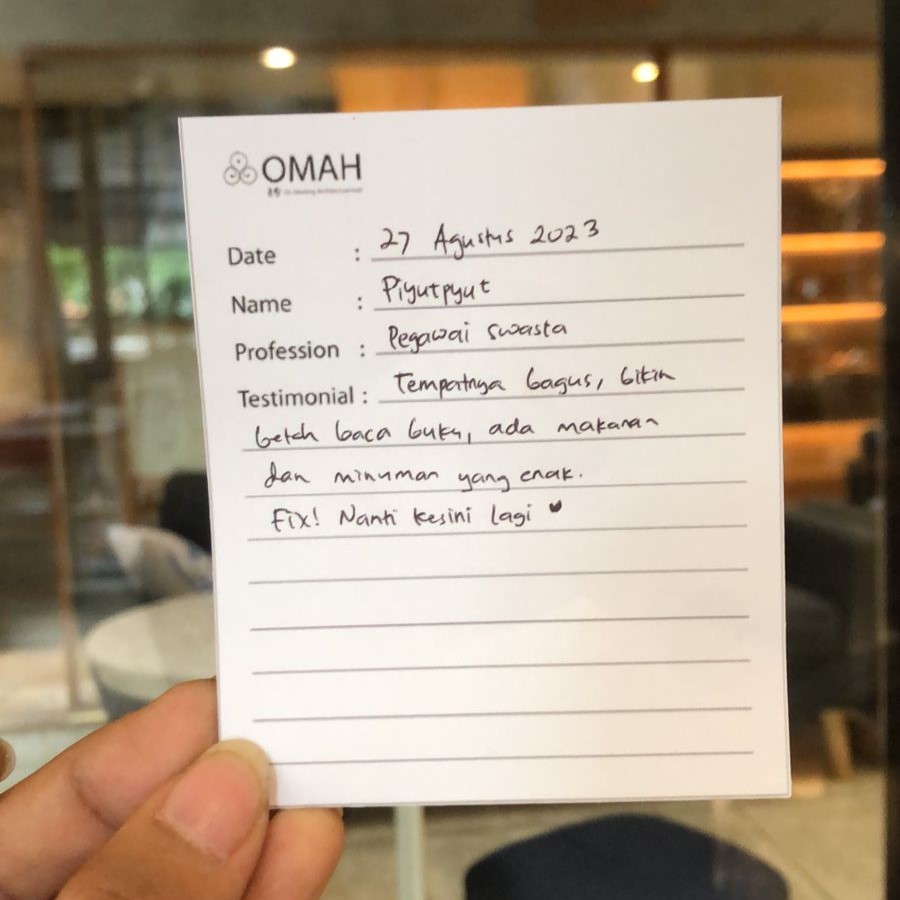 OMAH
Date : 27 Agustus 2023
Name : Piyutpyut
Profession : Pegawai swasta
Testimonial : Tempatnya bagus, bikin
betah baca buku, ada makanan
dan minuman yang enak.
Fix! Nanti kesini lagi ♥